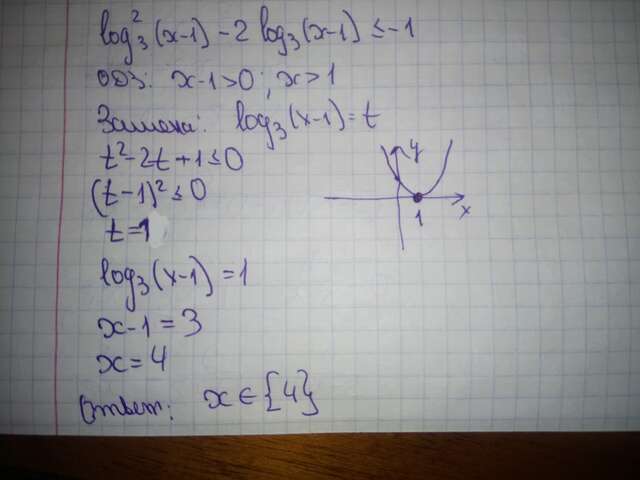 log₃²(x-1) - 2 log₃(x-1) ≤ -1
ОДЗ: x-1>0; x>1
Замена: log₃(x-1) = t
t² - 2t + 1 ≤ 0
(t-1)² ≤ 0
t=1
log₃(x-1) = 1
x-1 = 3
x = 4
Ответ: x ∈ {4}
y
1
x